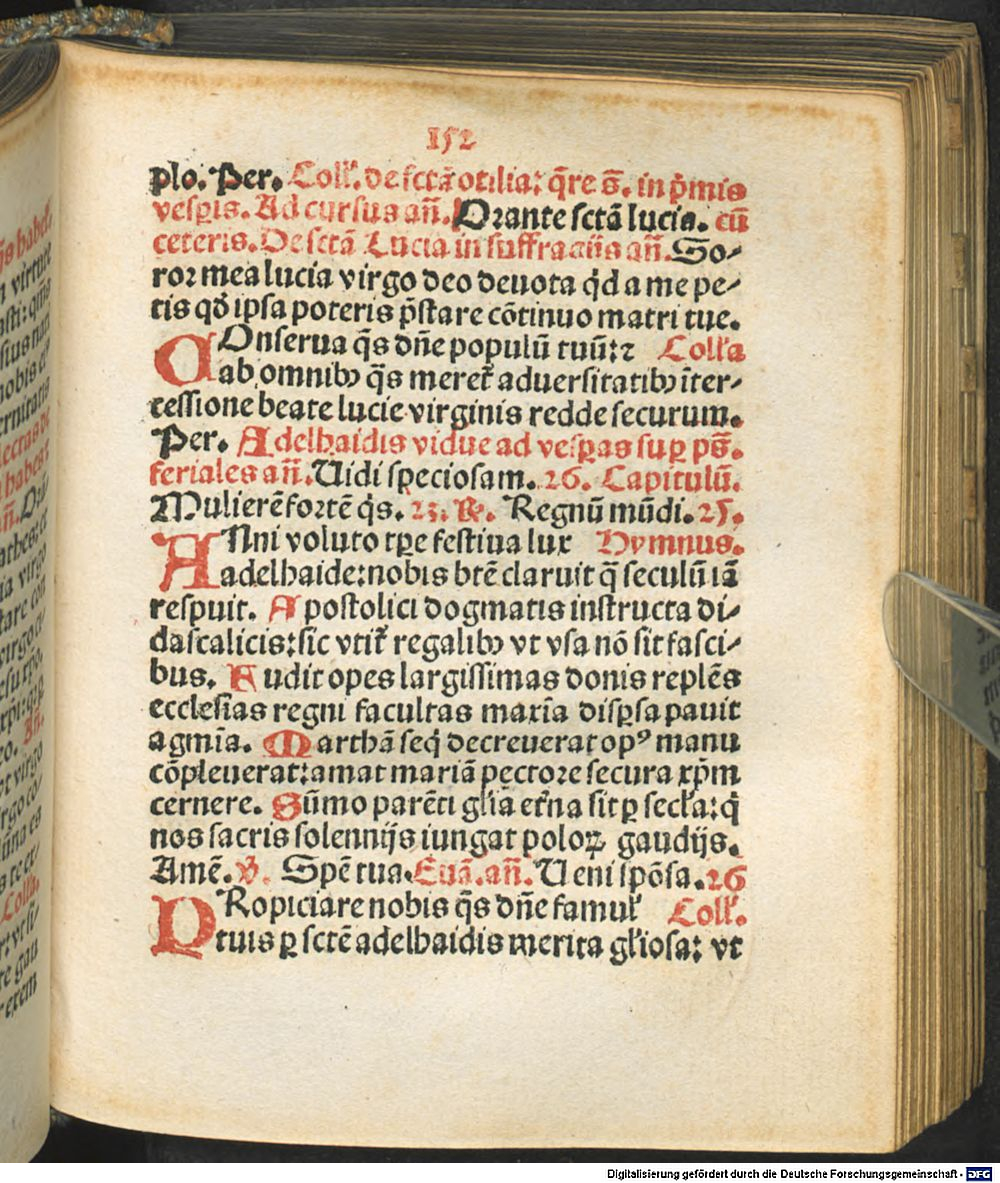 152
plo. Per. Coll'. de sctā otilia: q̄re s̄. in p̄mis
vesp̄is. Ad cursus an̄. Orante sctā lucia. cū
ceteris. De sctā Lucia in suffragiis an̄. So⸗
ror mea lucia virgo deo deuota qd̓ a me pe⸗
tis qd̓ ipsa poteris p̄stare cōtinuo matri tue.
COnserua q̄s dn̄e populū tuū: ⁊ Coll'a
ab omnibꝫ q̄s meret᷑ aduersitatibꝫ īter⸗
cessione beate lucie virginis redde securum.
Per. Adelhaidis vidue ad vesꝑas suꝑ ps̄.
feriales an̄. Uidi speciosam. 26. Capitulū.
Mulierē fortē q̇s. 23. ℟. Regnū mūdi. 25.
ANni voluto tꝑe festiua lux Hymnus.
adelhaide: nobis btē claruit q̄ seculū iā
respuit. Apostolici dogmatis instructa di⸗
dascalicis: sic vtit᷑ regalibꝫ vt vsa nō sit fasci⸗
bus. Audit opes largissimas donis replēs
ecclesias regni facultas maxīa disꝑsa pauit
agmīa. Marthā seq̇ decreuerat opꝰ manu
cōpleuerat: amat mariā pectore secura xp̄m
cernere. Sūmo parēti gl'ia et᷑na sit ꝑ secl'a: q̇
nos sacris solennijs iungat poloꝝ gaudijs.
Amē. ℣. Spē tua. Euā. an̄. Ueni spōsa. 26
PRopiciare nobis q̄s dn̄e famul' Coll'.
tuis ꝑ sctē adelhaidis merita gl'iosa: vt
Digitalisierung gefördert durch die Deutsche Forschungsgemeinschaft - DFG